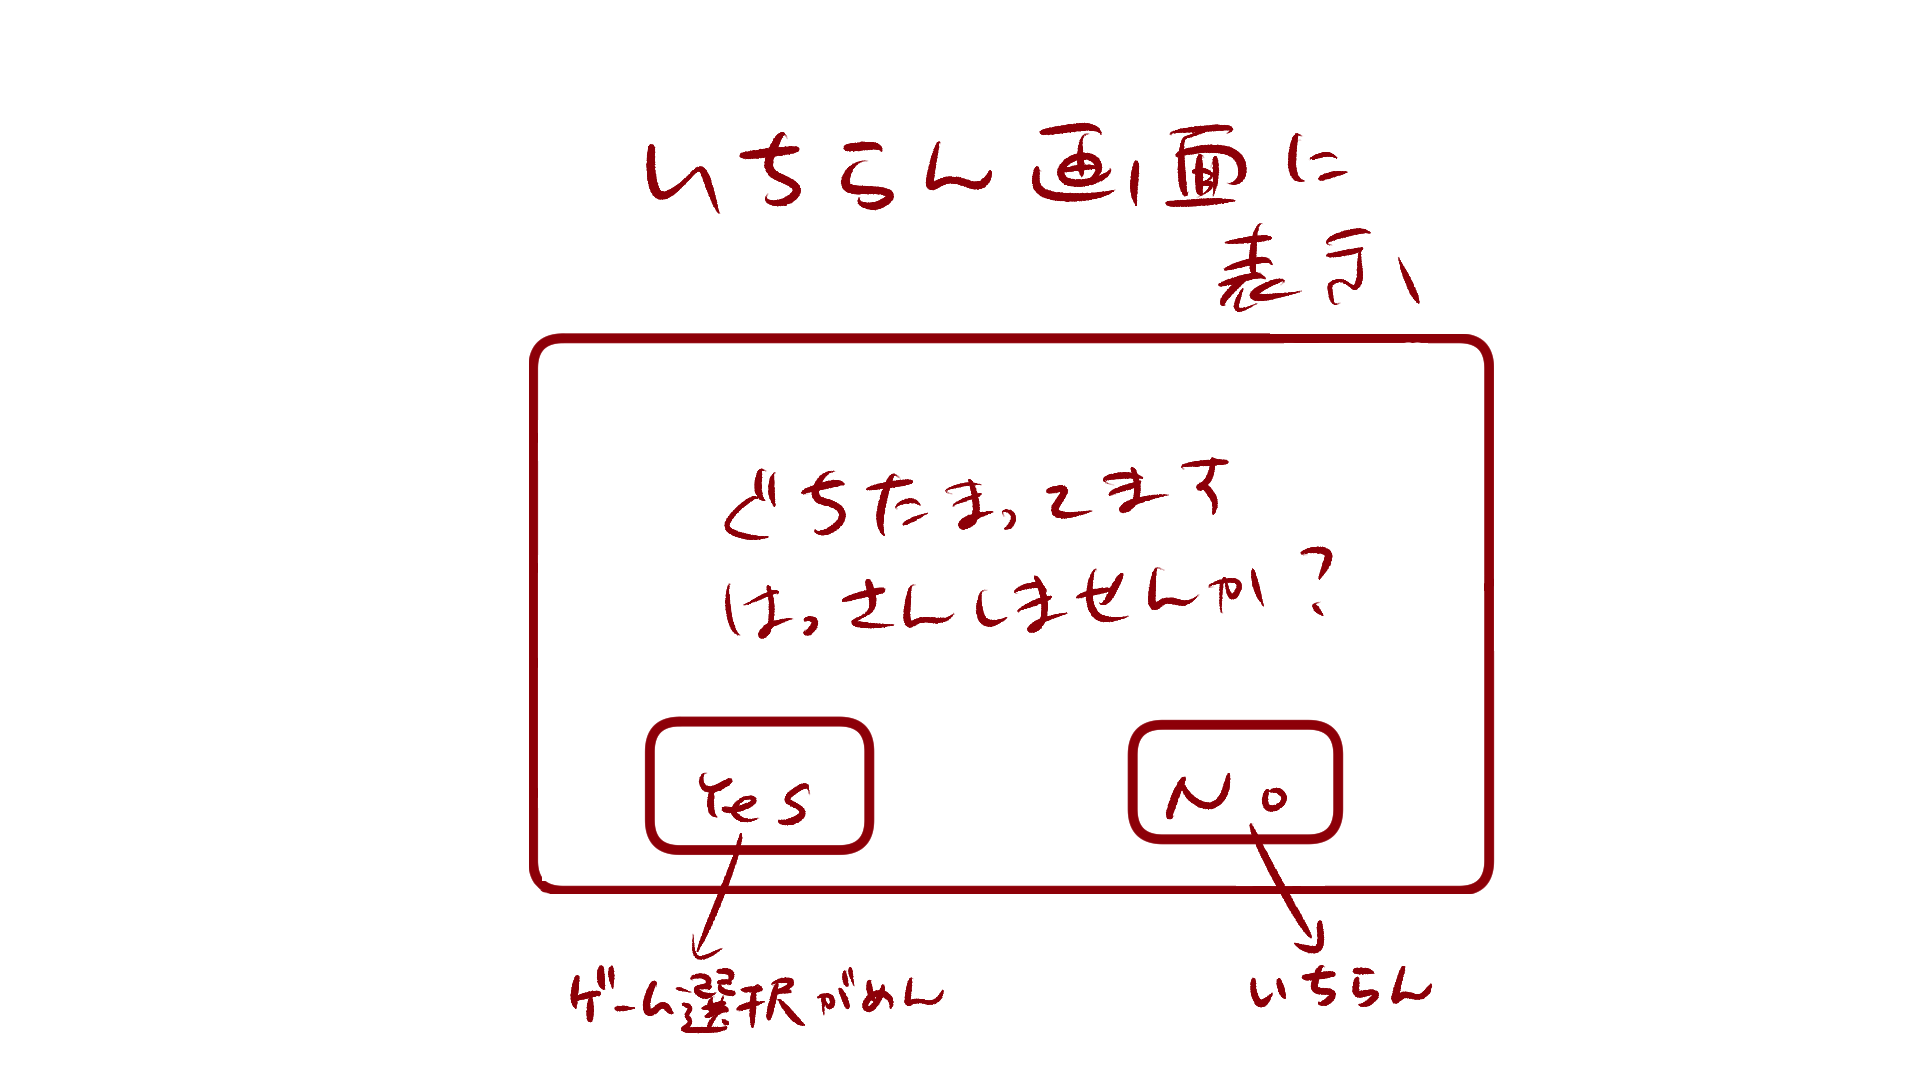 いちらん画面に
表示
ぐちたまってます
はっさんしませんか?
Yes
No
ゲーム選択がめん
いちらん